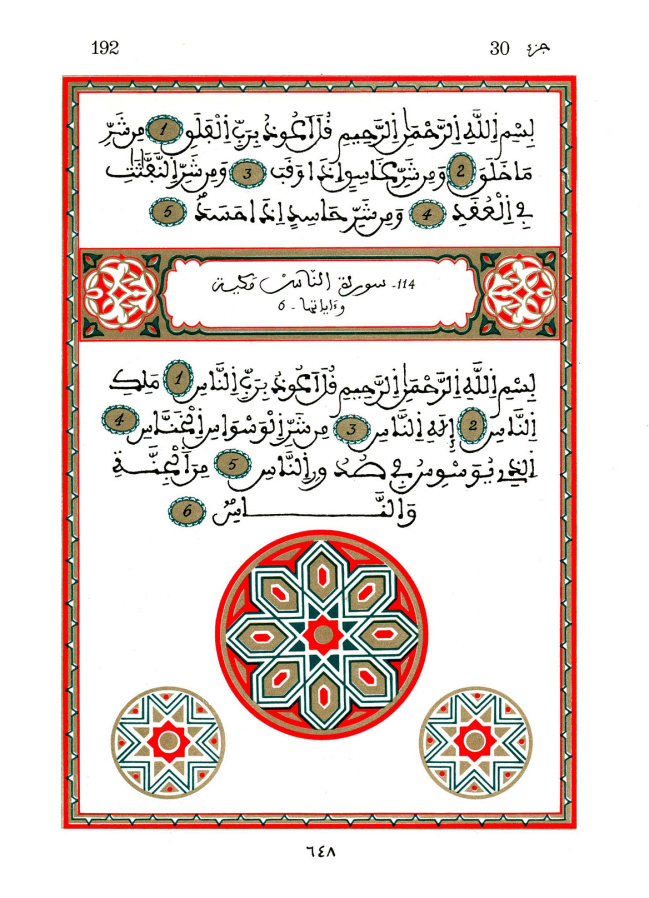 192 جزء 30
بِسْمِ اِ۬للَّهِ اِ۬لرَّحْمَٰنِ اِ۬لرَّحِيمِ قُلَ اَعُوذُ بِرَبِّ اِ۬لْفَلَقِ 1 مِن شَرِّ
مَا خَلَقَ 2 وَمِن شَرِّ غَاسِقٍ اِذَا وَقَبَ 3 وَمِن شَرِّ اِ۬لنَّفَّٰثَٰتِ
فِے اِ۬لْعُقَدِ 4 وَمِن شَرِّ حَاسِدٍ اِذَا حَسَدَ 5
114- سورة الناس مكية
وءاياتها - 6
بِسْمِ اِ۬للَّهِ اِ۬لرَّحْمَٰنِ اِ۬لرَّحِيمِ قُلَ اَعُوذُ بِرَبِّ اِ۬لنَّاسِ 1 مَلِكِ
اِ۬لنَّاسِ 2 إِلَٰهِ اِ۬لنَّاسِ 3 مِن شَرِّ اِ۬لْوَسْوَاسِ اِ۬لْخَنَّاسِ 4
اِ۬لذِے يُوَسْوِسُ فِے صُدُورِ اِ۬لنَّاسِ 5 مِنَ اَ۬لْجِنَّةِ
وَالنَّاسِ 6
٦٤٨